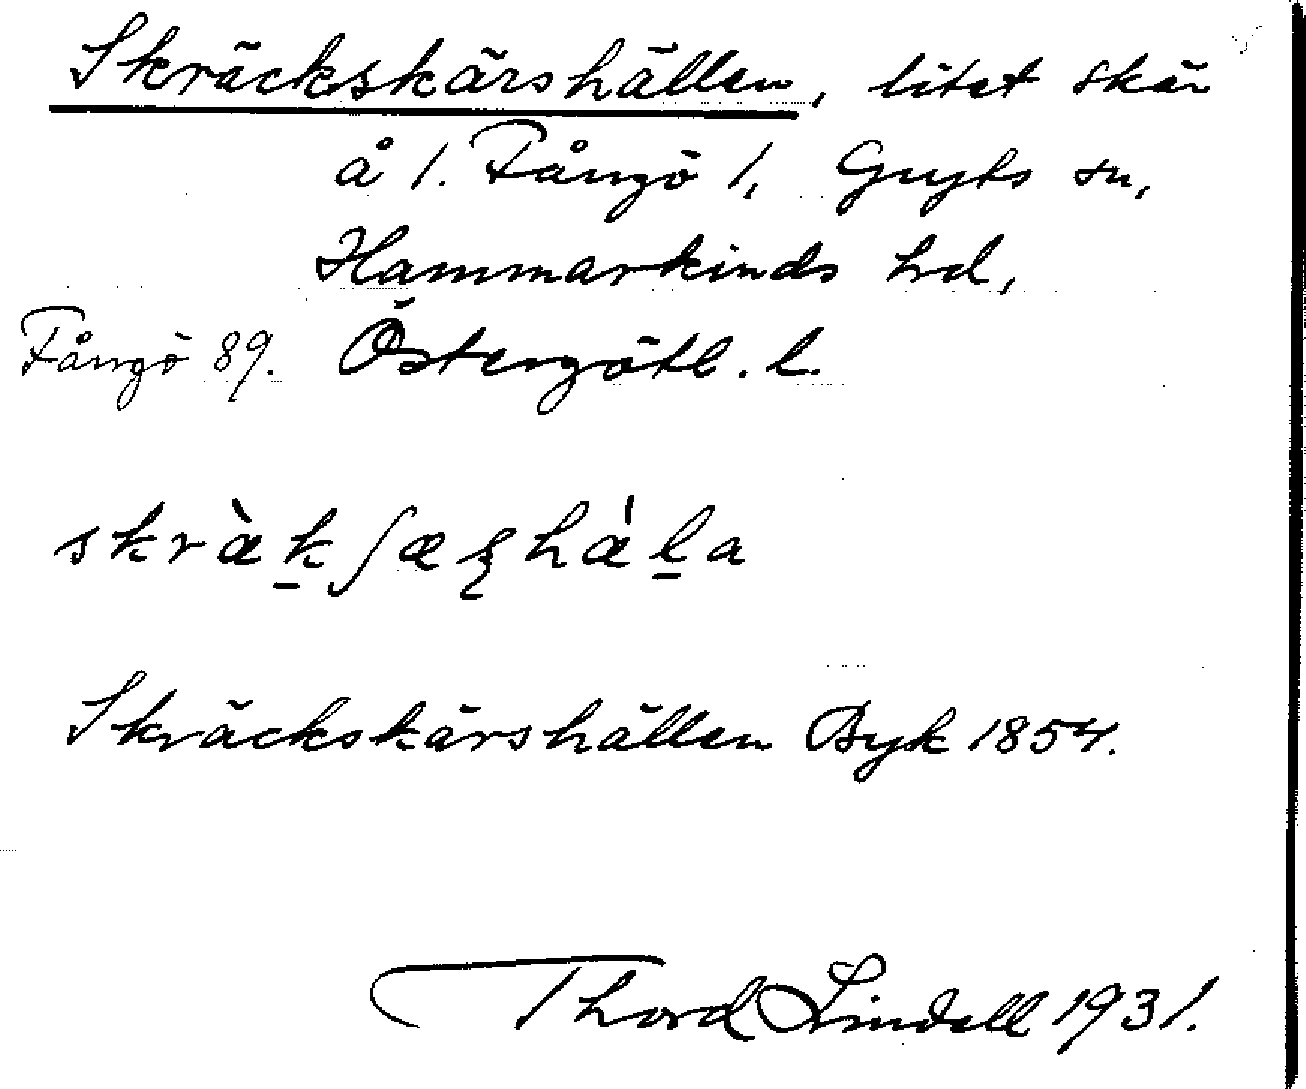 Skräckskärshällen, litet skär
å 1. Fångö 1, Gryts sn,
Hammarkinds hd,
Fångö 89. Östergötl. l.
skræ̀k̠ʃæʂhæ̍l̠a
Skräckskärshällen Byk 1854.
Thord Lindell 1931.